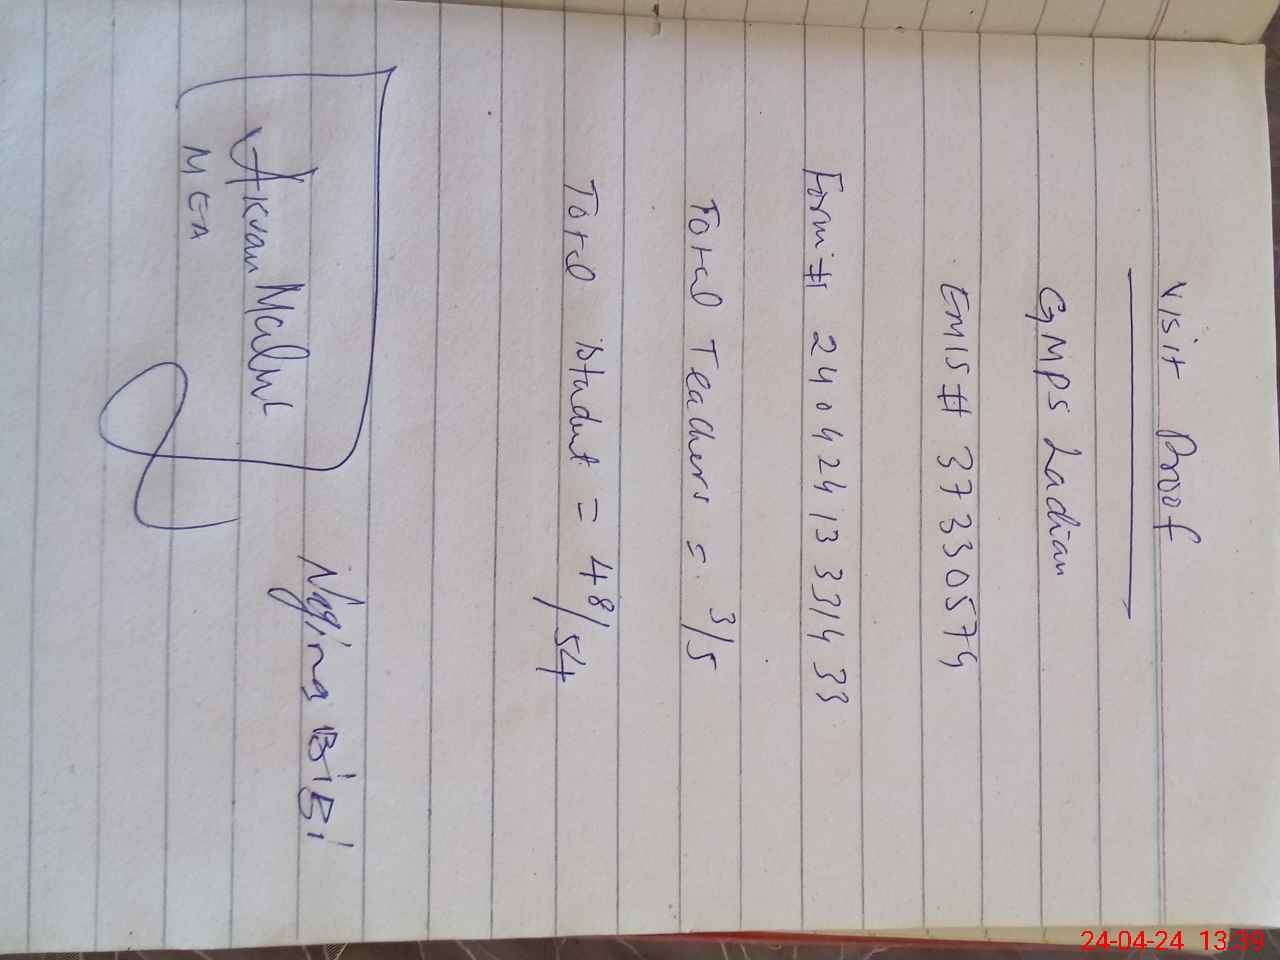 Visit Proof
GMPS Ladian
EMIS # 37330579
Form # 24042413331433
Total Teachers = 3/5
Total student = 48/54
MEA
Nagina BiBi
24-04-24 13:39